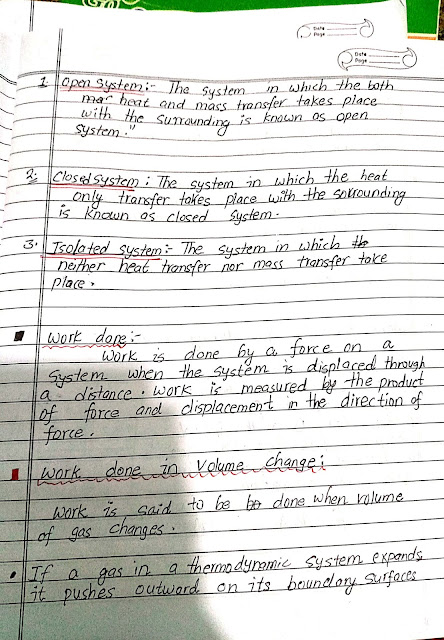 Date
Page
Date
Page
1. Open System:- The system in which the both
heat and mass transfer takes place
with the surrounding is known as open
system."
2. Closed System : The system in which the heat
only transfer takes place with the surrounding
is known as closed system.
3. Isolated system:- The system in which the
neither heat transfer nor mass transfer take
place.
Work done:-
Work is done by a force on a
System when the system is displaced through
a distance. Work is measured by the product
of force and displacement in the direction of
force.
Work done in Volume change:
Work is said to be be done when volume
of gas changes.
• If a gas in a thermodynamic system expands
it pushes outward on its boundary surfaces